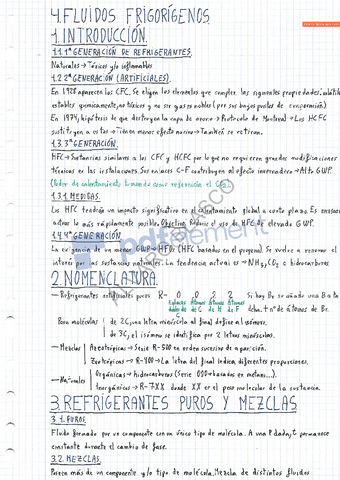 4.FLUIDOS FRIGORÍGENOS
1.INTRODUCCIÓN.
1.1.1ª GENERACIÓN DE REFRIGERANTES.
Naturales → Tóxicos y/o inflamables
1.2 2ª GENERACIÓN (ARTIFICIALES).
En 1928 aparecen los CFC. Se eligen los elementos que cumplen las siguientes propiedades: volátiles
estables químicamente, no tóxicos y no ser gases nobles (por sus bajos puntos de evaporación).
En 1974, hipótesis de que destruyen la capa de ozono → Protocolo de Montreal → Los HCFC
sustituyen a estos → Tienen menos efecto nocivo → También se retiran.
1.3.3ª GENERACIÓN.
HFC → Sustancias similares a los CFC y HCFC por lo que no requieren grandes modificaciones
técnicas en las instalaciones. Sus enlaces C-F contribuyen al efecto invernadero → Alto GWP.
(Poder de calentamiento tomando como referencia el CO2).
1.3.1 MEDIDAS.
Los HFC tendrán un impacto significativo en el calentamiento global a corto plazo. Es necesario
actuar lo más rápidamente posible. Objetivo: Reducir el uso del HFC de elevado GWP.
1.4 4ª GENERACIÓN
La exigencia de un menor GWP → HFO. (HFC basados en el propeno). Se vuelve a renovar el
interés por las sustancias naturales. La tendencia actual es → NH3, CO2 e hidrocarburos
2.NOMENCLATURA
— Refrigerantes artificiales puros R- 0 0 3 2 Si hay Br se añade una B a la
Átomos Átomos Átomos dcha. + nº de átomos de Br.
de C de H de F
Para moléculas de 2C, una letra minúscula al final define al isómero.
de 3C, el isómero se identifica por 2 letras minúsculas.
— Mezclas Azeotrópicas → Serie R-500 en orden sucesivo de aparición.
Zeotrópicas → R-400 → La letra del final indica diferentes proporciones.
— Naturales Orgánicos → hidrocarburos (Serie 000 → basados en metano...).
Inorgánicos → R-7XX donde XX es el peso molecular de la sustancia.
3.REFRIGERANTES PUROS Y MEZCLAS
3.1.PUROS.
Fluido formado por un componente con un único tipo de molécula. A una P dada, T permanece
constante durante el cambio de fase.
3.2.MEZCLAS.
Poseen más de un componente y/o tipo de molécula. Mezcla de distintos fluidos